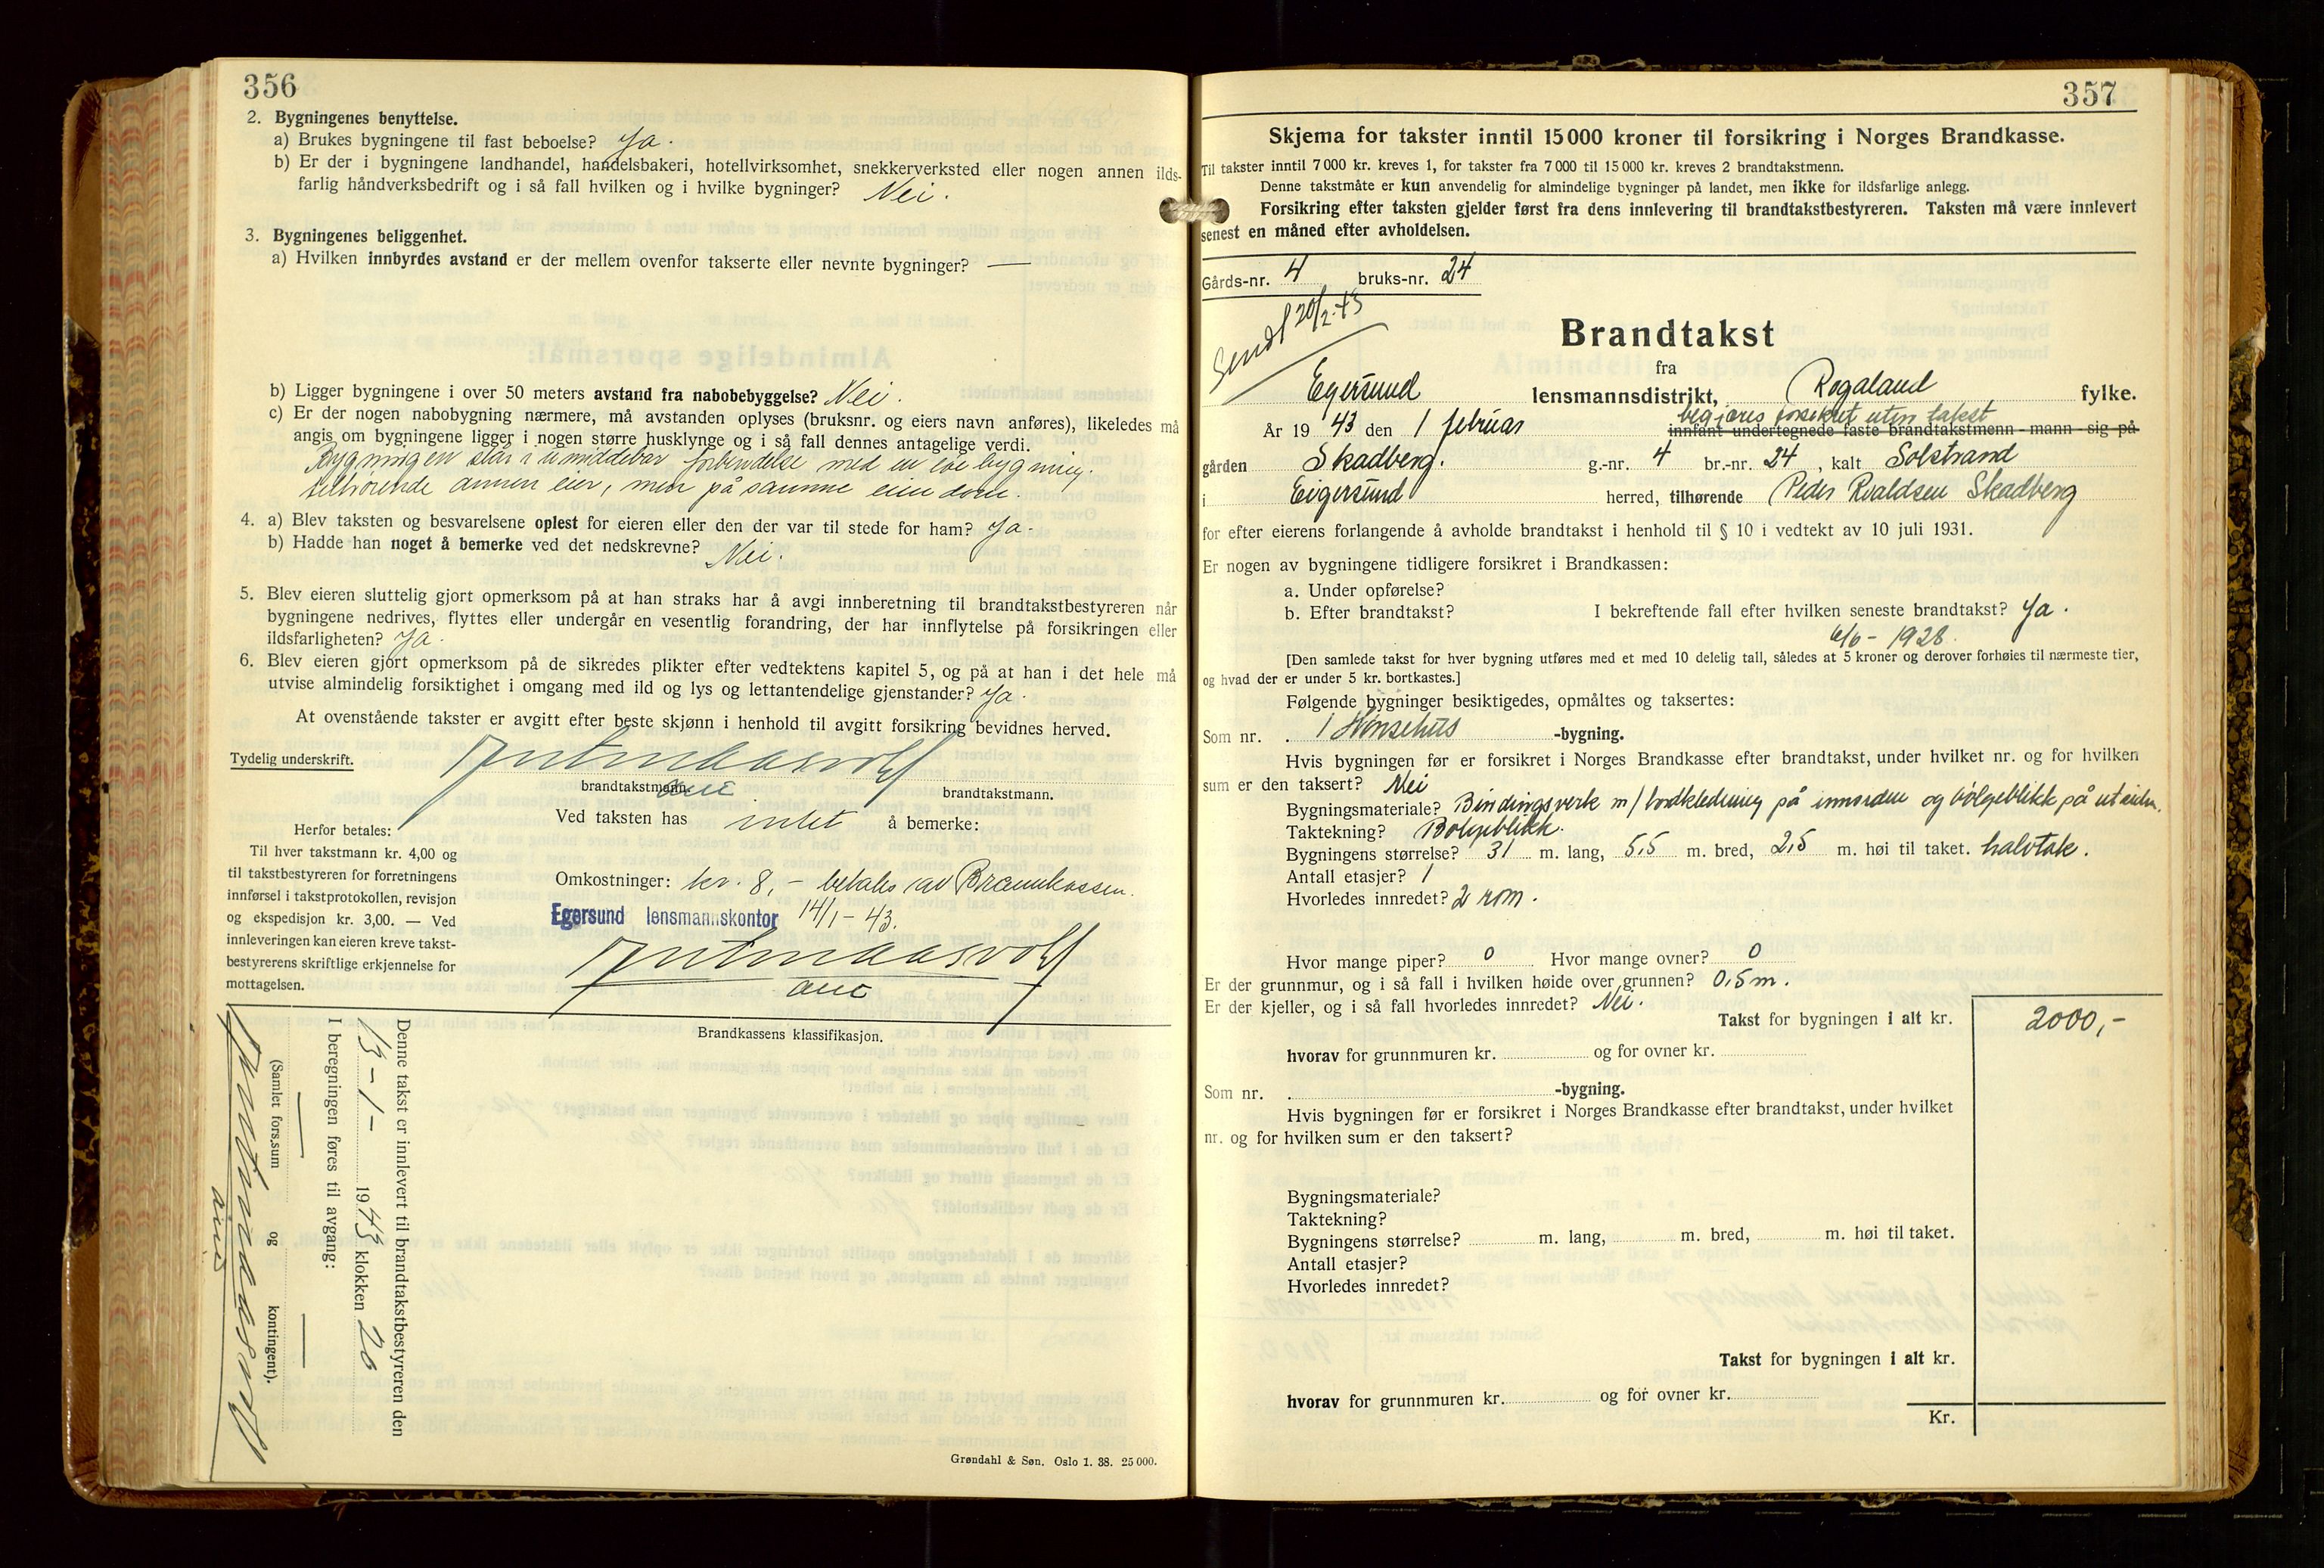 356
2. Bygningenes benyttelse.
a) Brukes bygningene til fast beboelse? Ja.
b) Er der i bygningene landhandel, handelsbakeri, hotellvirksomhet, snekkerverksted eller nogen annen ilds-
farlig håndverksbedrift og i så fall hvilken og i hvilke bygninger? Nei.
3. Bygningenes beliggenhet.
a) Hvilken innbyrdes avstand er der mellem ovenfor takserte eller nevnte bygninger? —
b) Ligger bygningene i over 50 meters avstand fra nabobebyggelse? Nei.
c) Er der nogen nabobygning nærmere, må avstanden oplyses (bruksnr. og eiers navn anføres), likeledes må
angis om bygningene ligger i nogen større husklynge og i så fall dennes antagelige verdi.
Bygningen står i umiddebar forbindelse med en bygning.
tilhørende annen eier, men på samme eiendom.
4. a) Blev taksten og besvarelsene oplest for eieren eller den der var til stede for ham? Ja.
b) Hadde han noget å bemerke ved det nedskrevne? Nei.
5. Blev eieren sluttelig gjort opmerksom på at han straks har å avgi innberetning til brandtakstbestyreren når
bygningene nedrives, flyttes eller undergår en vesentlig forandring, der har innflytelse på forsikringen eller
ildsfarligheten? Ja.
6. Blev eieren gjort opmerksom på de sikredes plikter efter vedtektens kapitel 5, og på at han i det hele må
utvise almindelig forsiktighet i omgang med ild og lys og lettantendelige gjenstander? Ja.
At ovenstående takster er avgitt efter beste skjønn i henhold til avgitt forsikring bevidnes herved.
Tydelig underskrift.
brandtakstmann. brandtakstmann.
Ved taksten has intet å bemerke:
Herfor betales:
Til hver takstmann kr. 4,00 og
til takstbestyreren for forretningens
innførsel i takstprotokollen, revisjon
og ekspedisjon kr. 3,00. — Ved
innleveringen kan eieren kreve takst-
bestyrerens skriftlige erkjennelse for
mottagelsen.
Omkostninger: kr. 8,- betales av Brannkassen.
Egersund lensmannskontor 14/1-43.
Brandkassens klassifikasjon.
Denne takst er innlevert til brandtakstbestyreren den
13-1- 1943 klokken 20
I beregningen føres til avgang:
(Samlet fors.sum og kontingent).
Grøndahl & Søn. Oslo 1. 38. 25 000.
357
Skjema for takster inntil 15 000 kroner til forsikring i Norges Brandkasse.
Til takster inntil 7 000 kr. kreves 1, for takster fra 7 000 til 15 000 kr. kreves 2 brandtakstmenn.
Denne takstmåte er kun anvendelig for almindelige bygninger på landet, men ikke for ildsfarlige anlegg.
Forsikring efter taksten gjelder først fra dens innlevering til brandtakstbestyreren. Taksten må være innlevert
senest en måned efter avholdelsen.
Gårds-nr. 4 bruks-nr. 24
Sendt 20/2-43
Brandtakst
fra
Egersund lensmannsdistrikt, Rogaland fylke.
begjæres forsikret uten takst
År 1943 den 1 februar innfant undertegnede faste brandtakstmenn - mann - sig på
gården Skadberg. g.-nr. 4 br.-nr. 24, kalt Solstrand
i Eigersund herred, tilhørende Peder Roaldsen Skadberg
for efter eierens forlangende å avholde brandtakst i henhold til § 10 i vedtekt av 10 juli 1931.
Er nogen av bygningene tidligere forsikret i Brandkassen:
a. Under opførelse?
b. Efter brandtakst? I bekreftende fall efter hvilken seneste brandtakst? Ja.
6/6 - 1928.
[Den samlede takst for hver bygning utføres med et med 10 delelig tall, således at 5 kroner og derover forhøies til nærmeste tier,
og hvad der er under 5 kr. bortkastes.]
Følgende bygninger besiktigedes, opmåltes og taksertes:
Som nr. 1 Hønsehus -bygning.
Hvis bygningen før er forsikret i Norges Brandkasse efter brandtakst, under hvilket nr. og for hvilken
sum er den taksert? Nei
Bygningsmateriale? Bindingsverk m/ bordkledning på innsiden og bølgeblikk på utsiden.
Taktekning? Bølgeblikk.
Bygningens størrelse? 31 m. lang, 5,5 m. bred, 2,5 m. høi til taket. halvtak.
Antall etasjer? 1
Hvorledes innredet? 2 rom.
Hvor mange piper? 0 Hvor mange ovner? 0
Er der grunnmur, og i så fall i hvilken høide over grunnen? 0,5 m.
Er der kjeller, og i så fall hvorledes innredet? Nei.
Takst for bygningen i alt kr. 2000,-
hvorav for grunnmuren kr. og for ovner kr.
Som nr. -bygning.
Hvis bygningen før er forsikret i Norges Brandkasse efter brandtakst, under hvilket
nr. og for hvilken sum er den taksert?
Bygningsmateriale?
Taktekning?
Bygningens størrelse? m. lang, m. bred, m. høi til taket.
Antall etasjer?
Hvorledes innredet?
Takst for bygningen i alt kr.
hvorav for grunnmuren kr. og for ovner kr.
Kr.